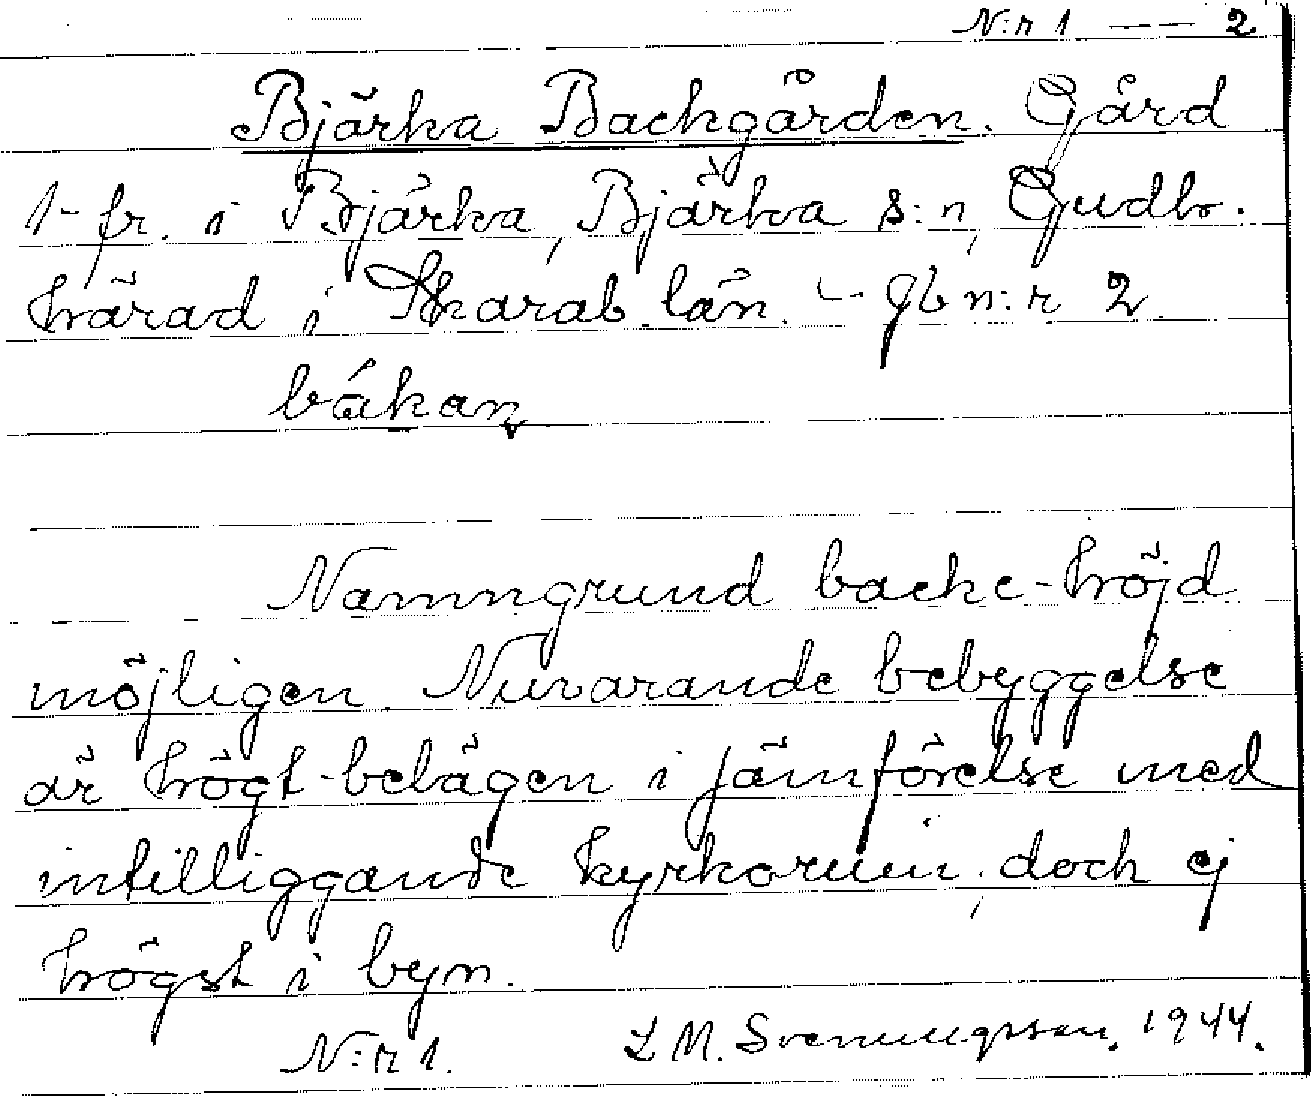 N:r 1 — 2
Bjärka Backgården. Gård
1 fr. i Bjärka, Bjärka s:n, Gudh.
härad i Skarab. län. - Jb n:r 2.
bákan
Namngrund backe-höjd
möjligen. Nuvarande bebyggelse
är högt belägen i jämförelse med
intilliggande kyrkoruin, doch ej
högst i byn.
N:r 1. L M. Svenungsson. 1944.